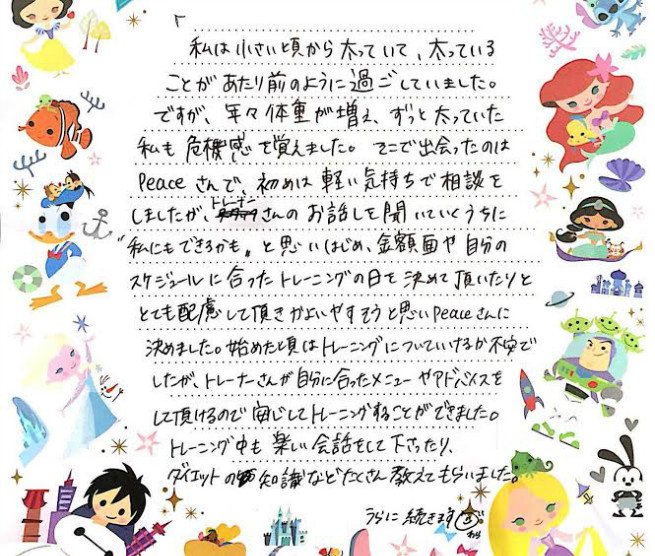 「
私は小さい頃から太っていて、太っている
ことがあたり前のように過ごしていました。
ですが、年々体重が増え、ずっと太っていた
私も危機感を覚えました。そこで出会ったのは
Peaceさんで、初めは軽い気持ちで相談を
しましたが、トレーナーさんのお話しを聞いていくうちに
"私にもできるかも"と思いはじめ、金額面や自分の
スケジュールに合ったトレーニングの日を決めて頂いたりと
とても配慮して頂きかよいやすそうと思いPeaceさんに
決めました。始めた頃はトレーニングについていけるか不安で
したが、トレーナーさんが自分に合ったメニューやアドバイスを
して頂けるので安心してトレーニングすることができました。
トレーニング中も楽しい会話をして下さったり、
ダイエットの知識などたくさん教えてもらいました。
うらに続きます